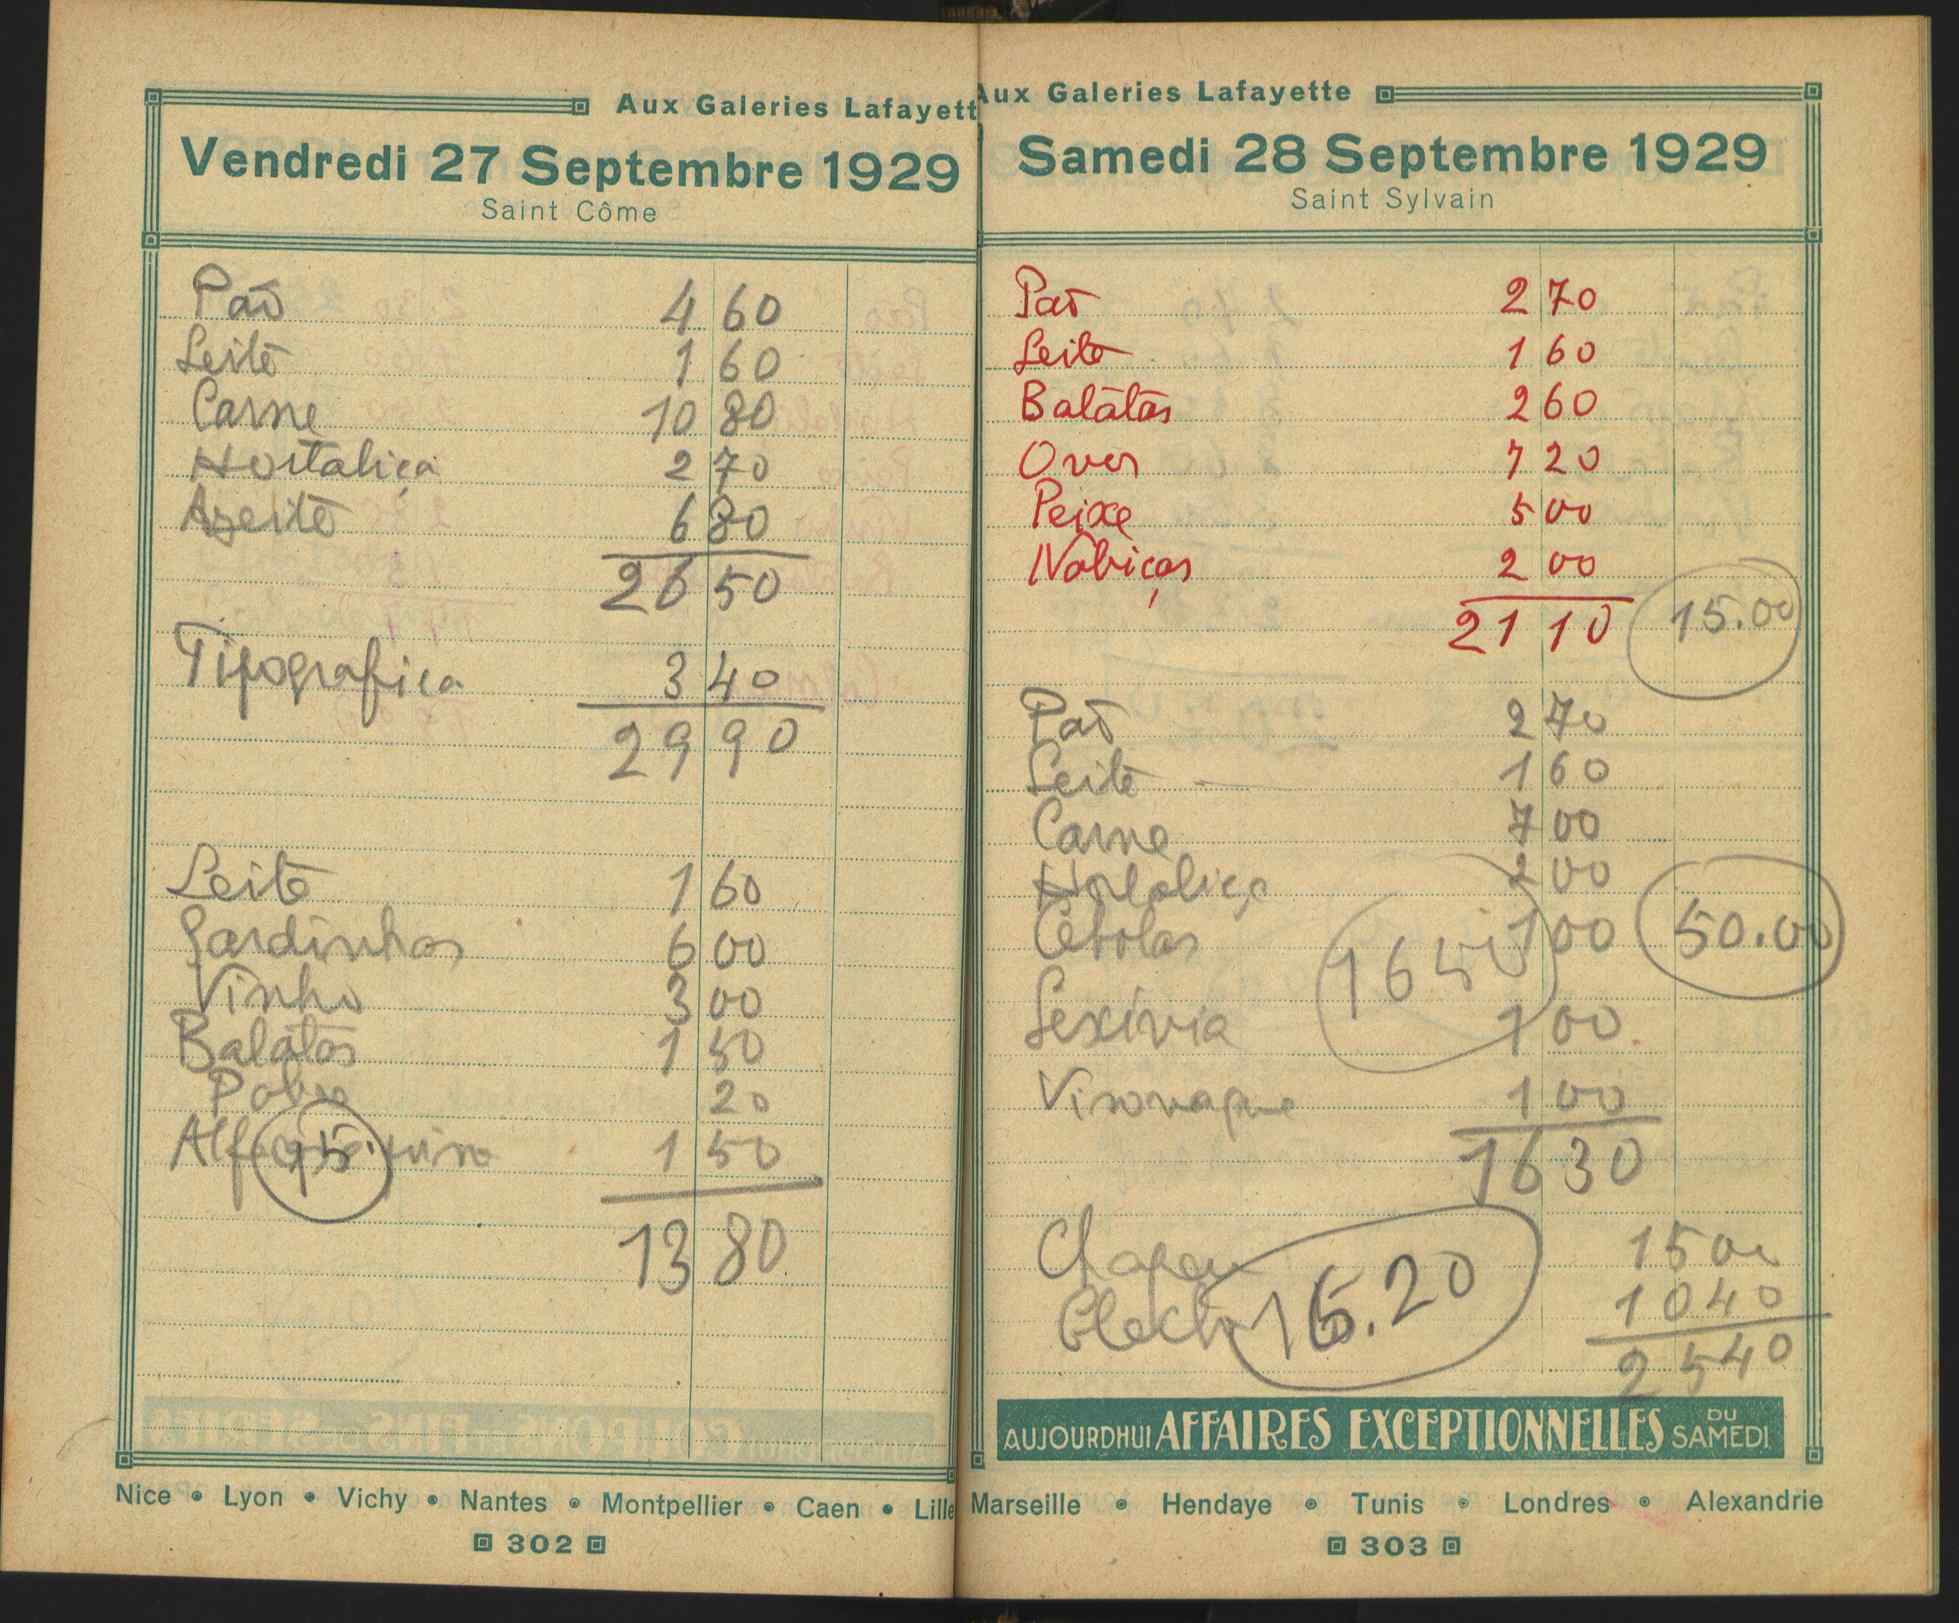 Aux Galeries Lafayett
Vendredi 27 Septembre 1929
Saint Côme
Pão 4 60
Leite 1 60
Carne 10 80
Hortaliça 2 70
Azeite 6 80
26 50
Tipografica 3 40
29 90
Leite 1 60
Sardinhas 6 00
Vinho 3 00
Batatas 1 50
Pobre 20
15. 1 50
13 80
Nice • Lyon • Vichy • Nantes • Montpellier • Caen • Lille
302
Aux Galeries Lafayette
Samedi 28 Septembre 1929
Saint Sylvain
Pão 2 70
Leite 1 60
Batatas 2 60
Ovos 7 20
Peixe 5 00
Nabiças 2 00
21 10 15.00
Pão 2 70
Leite 1 60
Carne 7 00
Hortaliça 2 00
Cebolas 1 00 50.00
Lexivia 1 00
Vinonagre 1 00
16 30
Chapeu 15 00
16.20 10 40
25 40
AUJOURDHUI AFFAIRES EXCEPTIONNELLES DU SAMEDI
Marseille • Hendaye • Tunis • Londres • Alexandrie
303